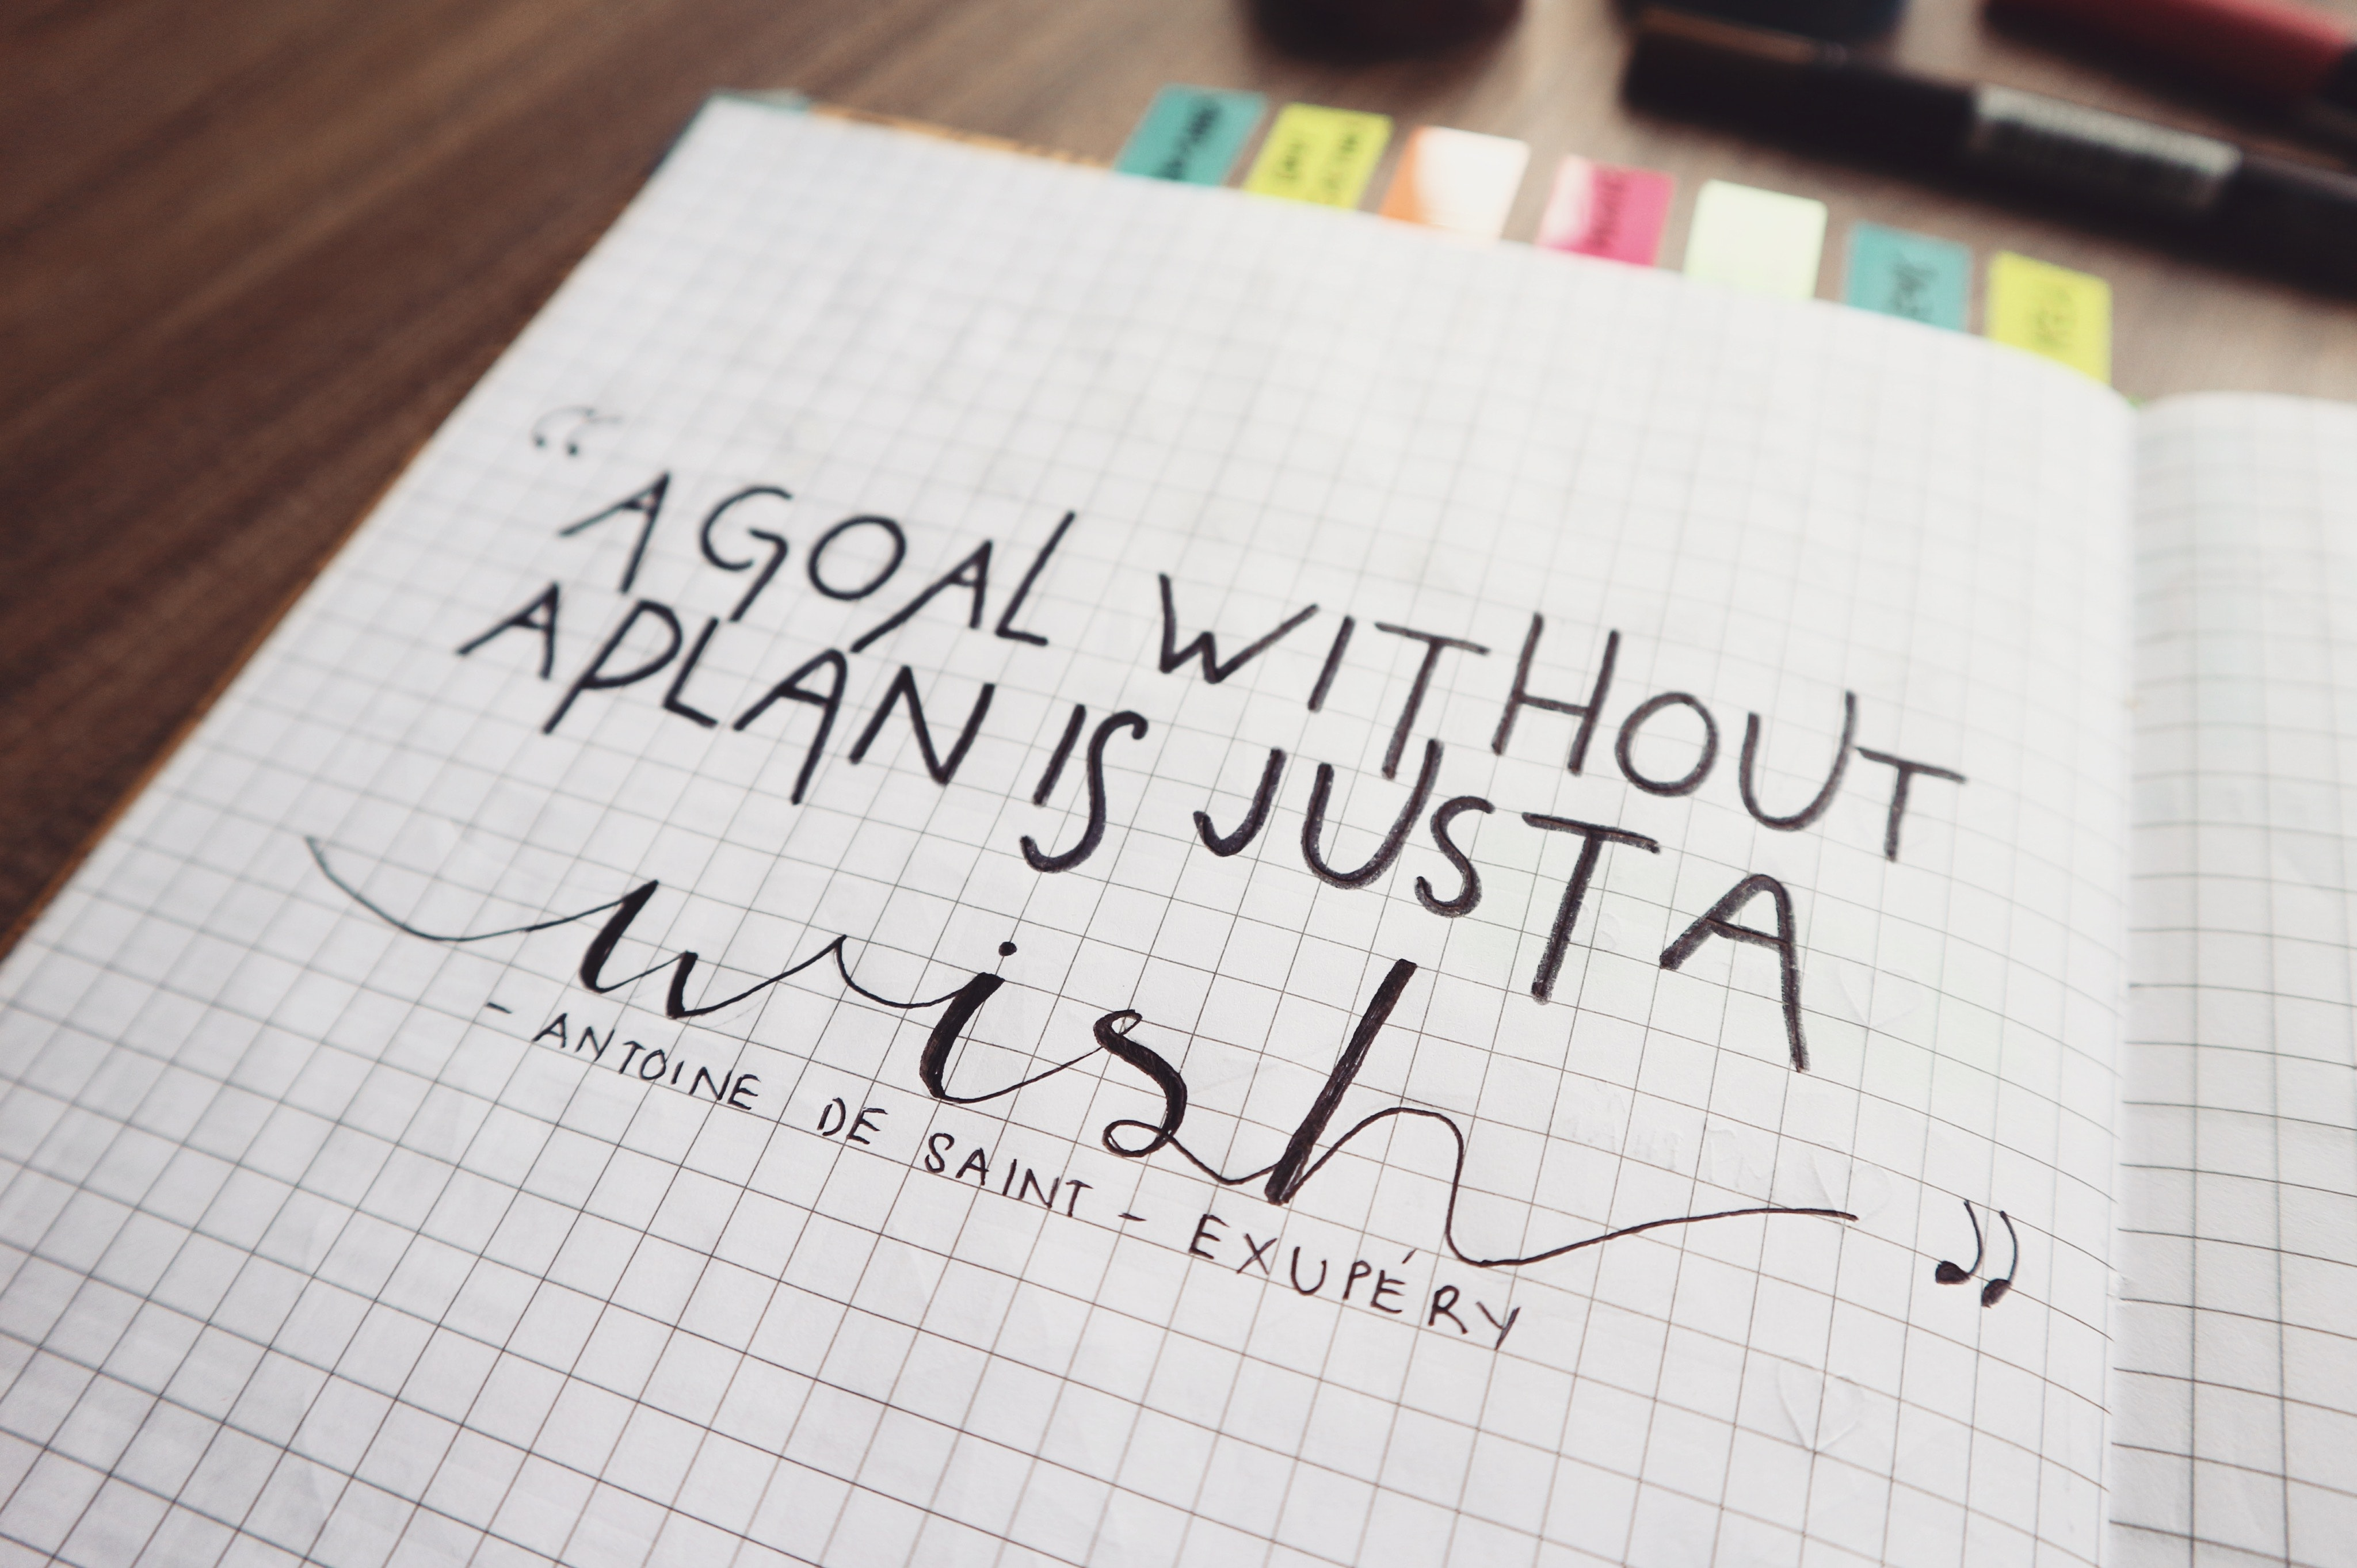 “A GOAL WITHOUT
A PLAN IS JUST A
wish”
- ANTOINE DE SAINT-EXUPÉRY